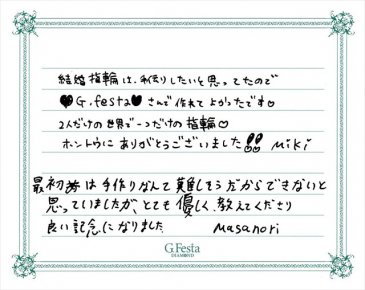 結婚指輪は、手作りしたいと思ってたので
♥G.festa♥さんで作れてよかったです♡
2人だけの世界で一つだけの指輪♡
ホントウにありがとうございました!! Miki
最初は手作りなんて難しそうだからできないと
思っていましたが、とても優しく教えてくださり
良い記念になりました Masanori
G.Festa
DIAMOND